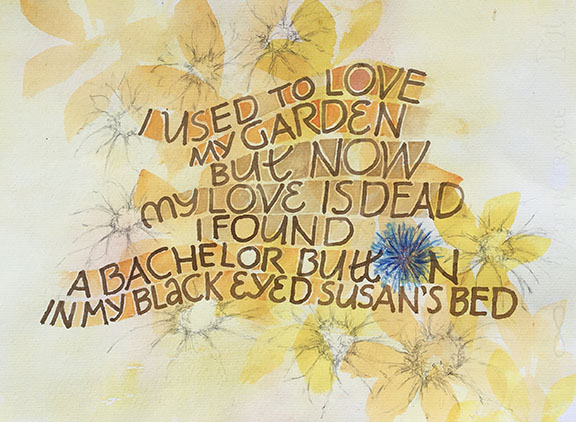 I USED TO LOVE
MY GARDEN
BUT NOW
MY LOVE IS DEAD
I FOUND
A BACHELOR BUTTON
IN MY BLACK EYED SUSAN'S BED